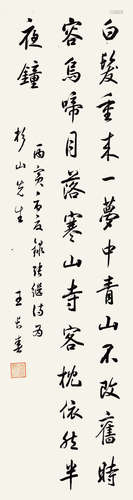 白髮重来一夢中青山不改舊時
容烏啼月落寒山寺客枕依然半
夜鐘
丙寅夏録張継詩為
杉山先生
王